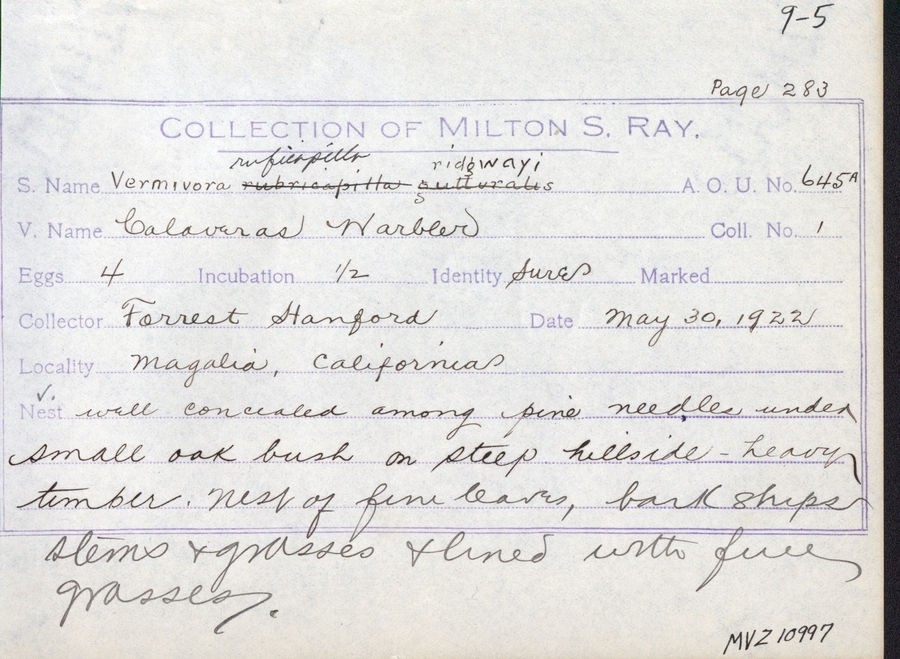 9-5
Page 283
COLLECTION OF MILTON S. RAY.
ruficapilla ridgwayi
S. Name Vermivora rubricapilla gutturalis A. O. U. No. 645A
V. Name Calaveras Warbler Coll. No. 1
Eggs 4 Incubation 1/2 Identity sure Marked
Collector Forrest Hanford Date May 30, 1922
Locality Magalia, California
✓.
Nest well concealed among pine needles under
small oak bush on steep hillside - heavy
timber. Nest of fine leaves, bark strips
stems & grasses & lined with fine
grasses.
MVZ 10997